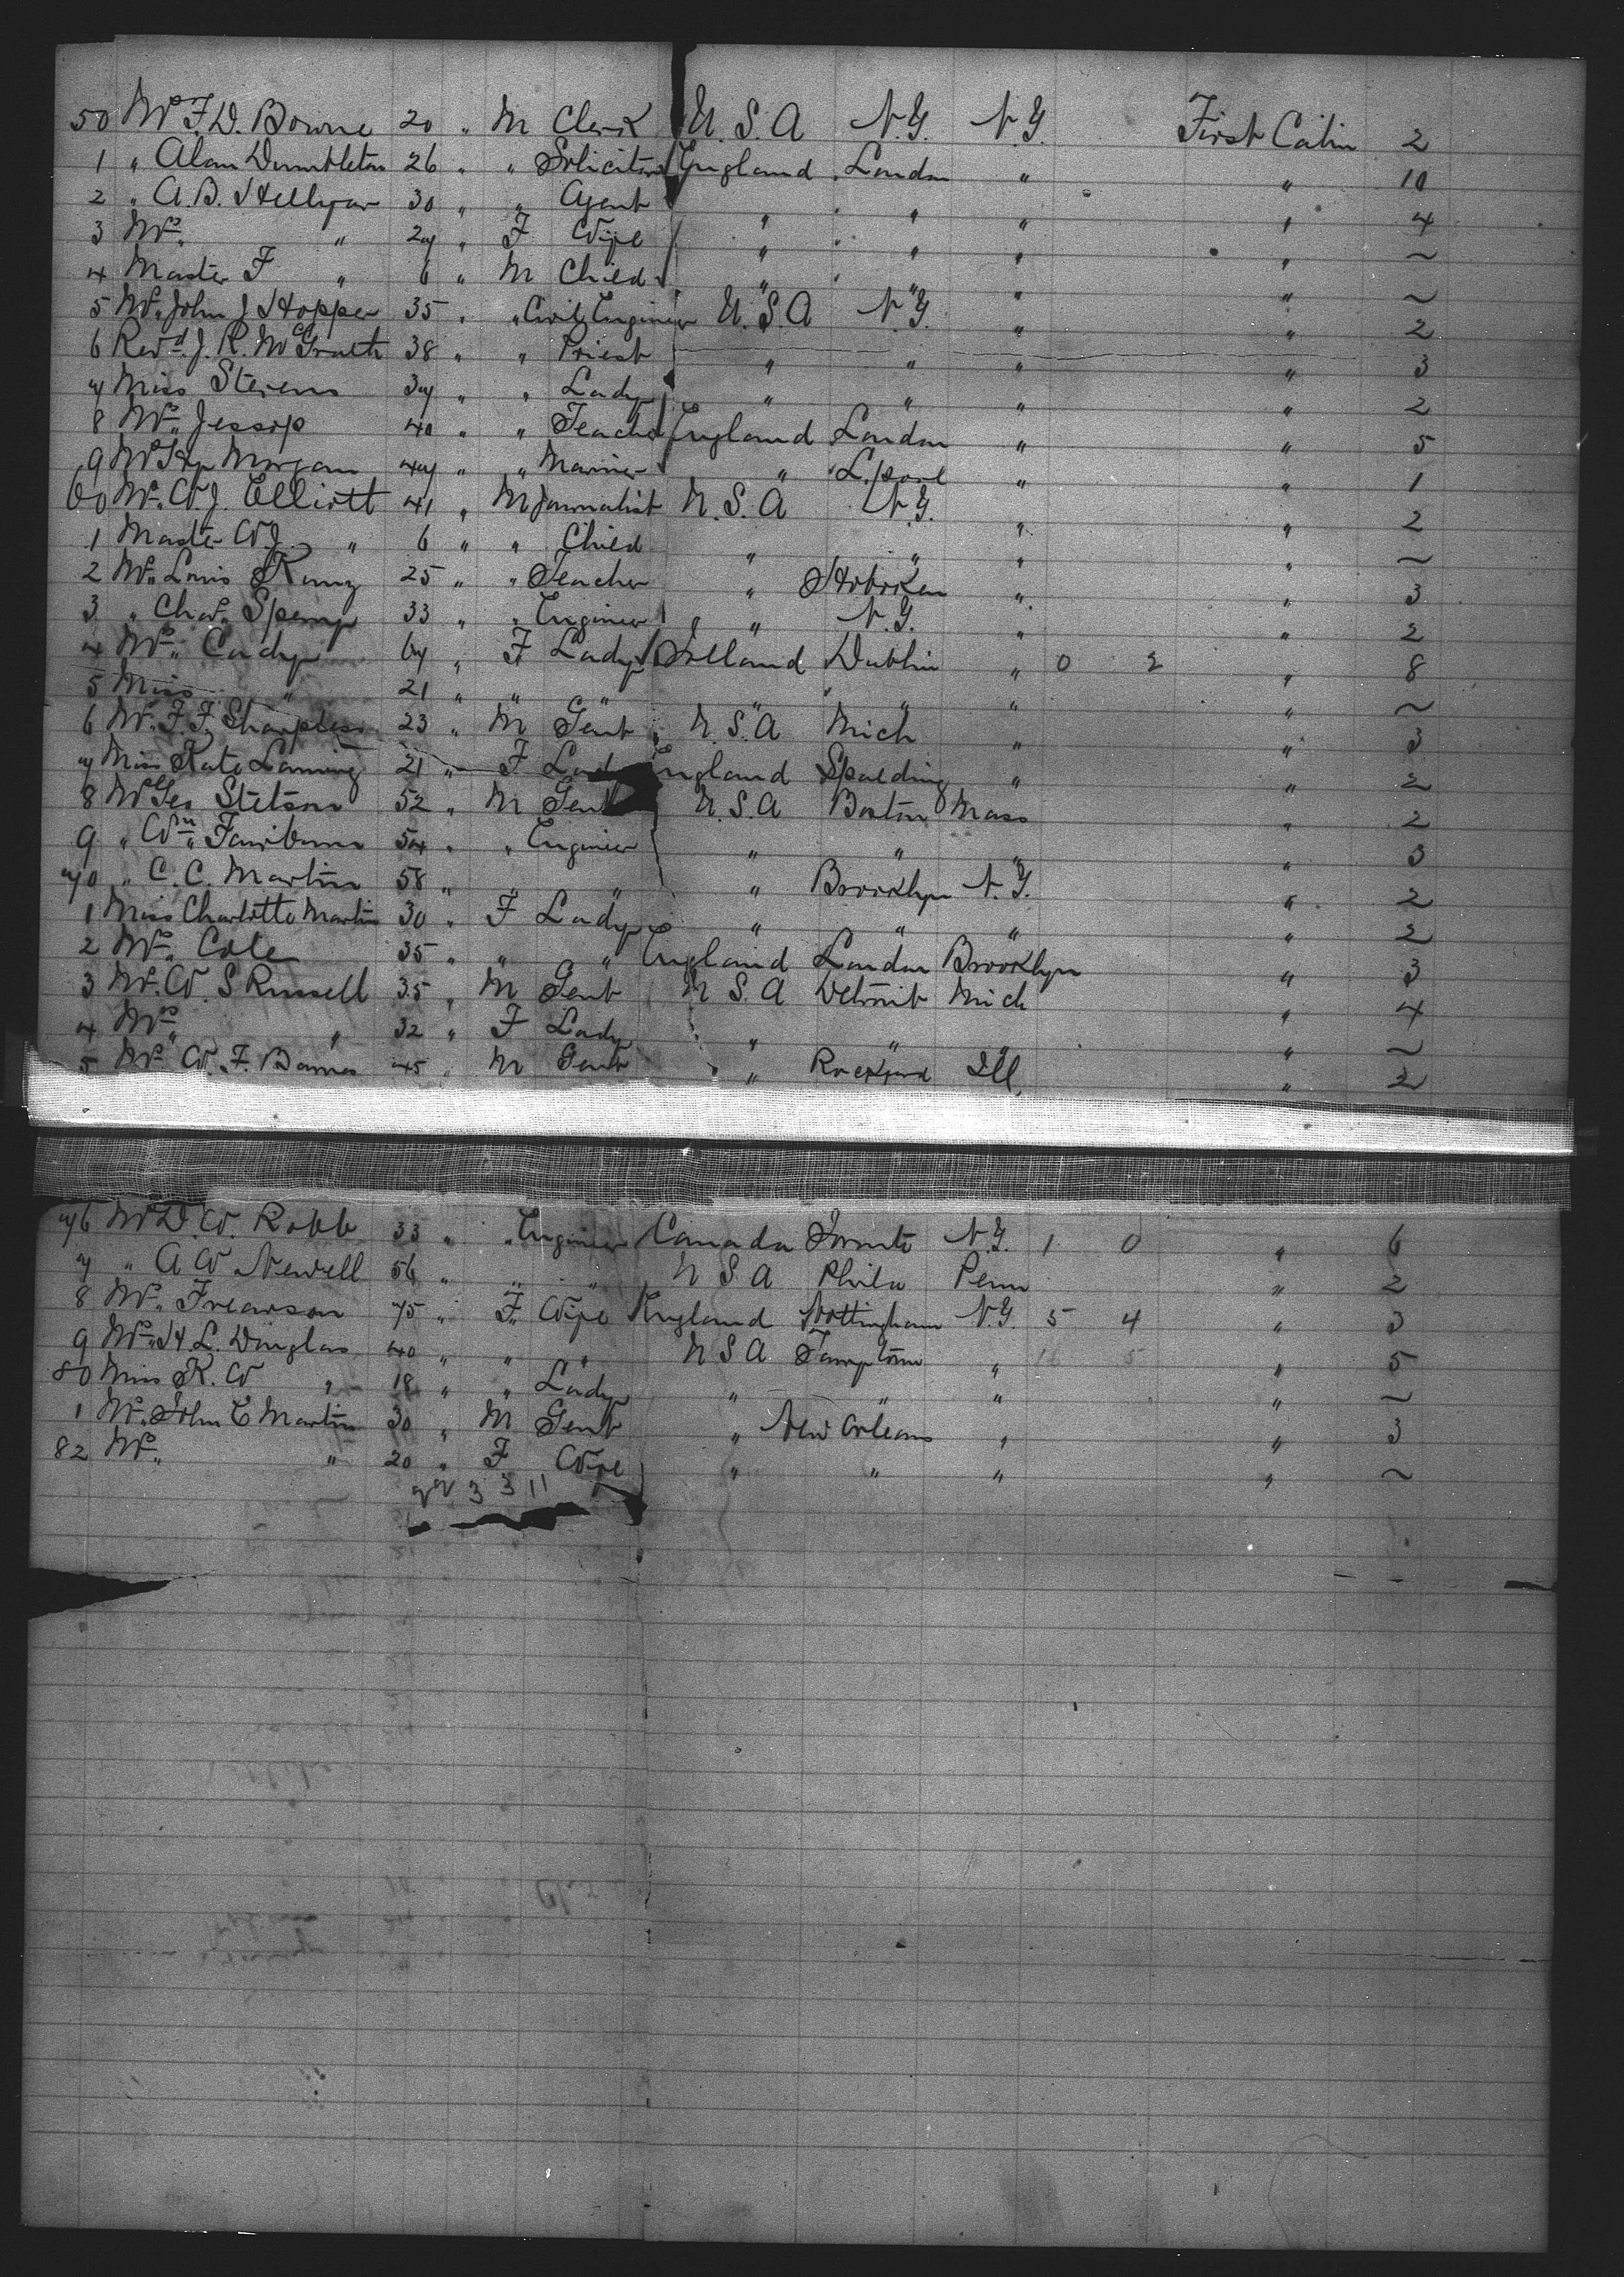 50 Mr F. D. Bowne 20 " M Clerk U. S. A N.Y. N.Y. First Cabin 2
1 " Alan Dumbleton 26 " " Solicitor England London " " 10
2 " A. B. Hellyar 30 " " Agent " " " " 4
3 Mrs " 27 " F Wife " " " " ~
4 Master F " 6 " M Child " " " " ~
5 Mr John J Hopper 35 " " Civil Engineer U. S. A N.Y. " " 2
6 Revd J. R. McGrath 38 " " Priest " " " " 3
7 Miss Stevens 37 " " Lady " " " " 2
8 Mrs Jessop 40 " " Teacher England London " " 5
9 Mr Hy Morgan 47 " " Mariner " L.pool " " 1
60 Mr W. J. Elliott 41 " M Journalist U. S. A N.Y. " " 2
1 Master W J " 6 " " Child " " " " ~
2 Mr Louis Kunz 25 " " Teacher " Hoboken " " 3
3 " Chas. 33 " " Engineer " N.Y. " " 2
4 Mrs Cody 67 " F Lady Dublin " 0 2 " 8
5 Miss " 21 " " " " " " " ~
6 Mr F. F. Sharpless 23 " M Gent U. S. A Mich " " 3
7 Miss Kate Laming 21 " F Lady England Spalding " " 2
8 Mr Geo Stetson 52 " M Gent U. S. A Boston Mass " 2
9 " Wm Fairburn 54 " " Engineer " " " " 3
70 " C. C. Martin 58 " " " " Brooklyn N.Y. " 2
1 Miss Charlotte Martin 30 " F Lady " " " " 2
2 Mrs Cole 35 " " " England London Brooklyn " 3
3 Mr W. S Russell 35 " M Gent U S. A Detroit Mich " 4
4 Mrs " 32 " F Lady " " " " ~
5 Mr W. F. Barnes 45 " M Gent " Rockford Ill. " 2
76 Mr D. W. Robb 33 " " Engineer Canada Toronto N.Y. 1 0 " 6
7 " A W Newell 56 " " " U S A Phila Penn " 2
8 Mrs Frearson 75 " F Wife England Nottingham N.Y. 5 4 " 3
9 Mrs H. L. Douglas 40 " " " U S A " 16 5 " 5
80 Miss K. W " 18 " " Lady " " " " ~
1 Mr John C Martin 30 " M Gent " New Orleans " " 3
82 Mrs " 20 " F Wife " " " " ~
3 3 11